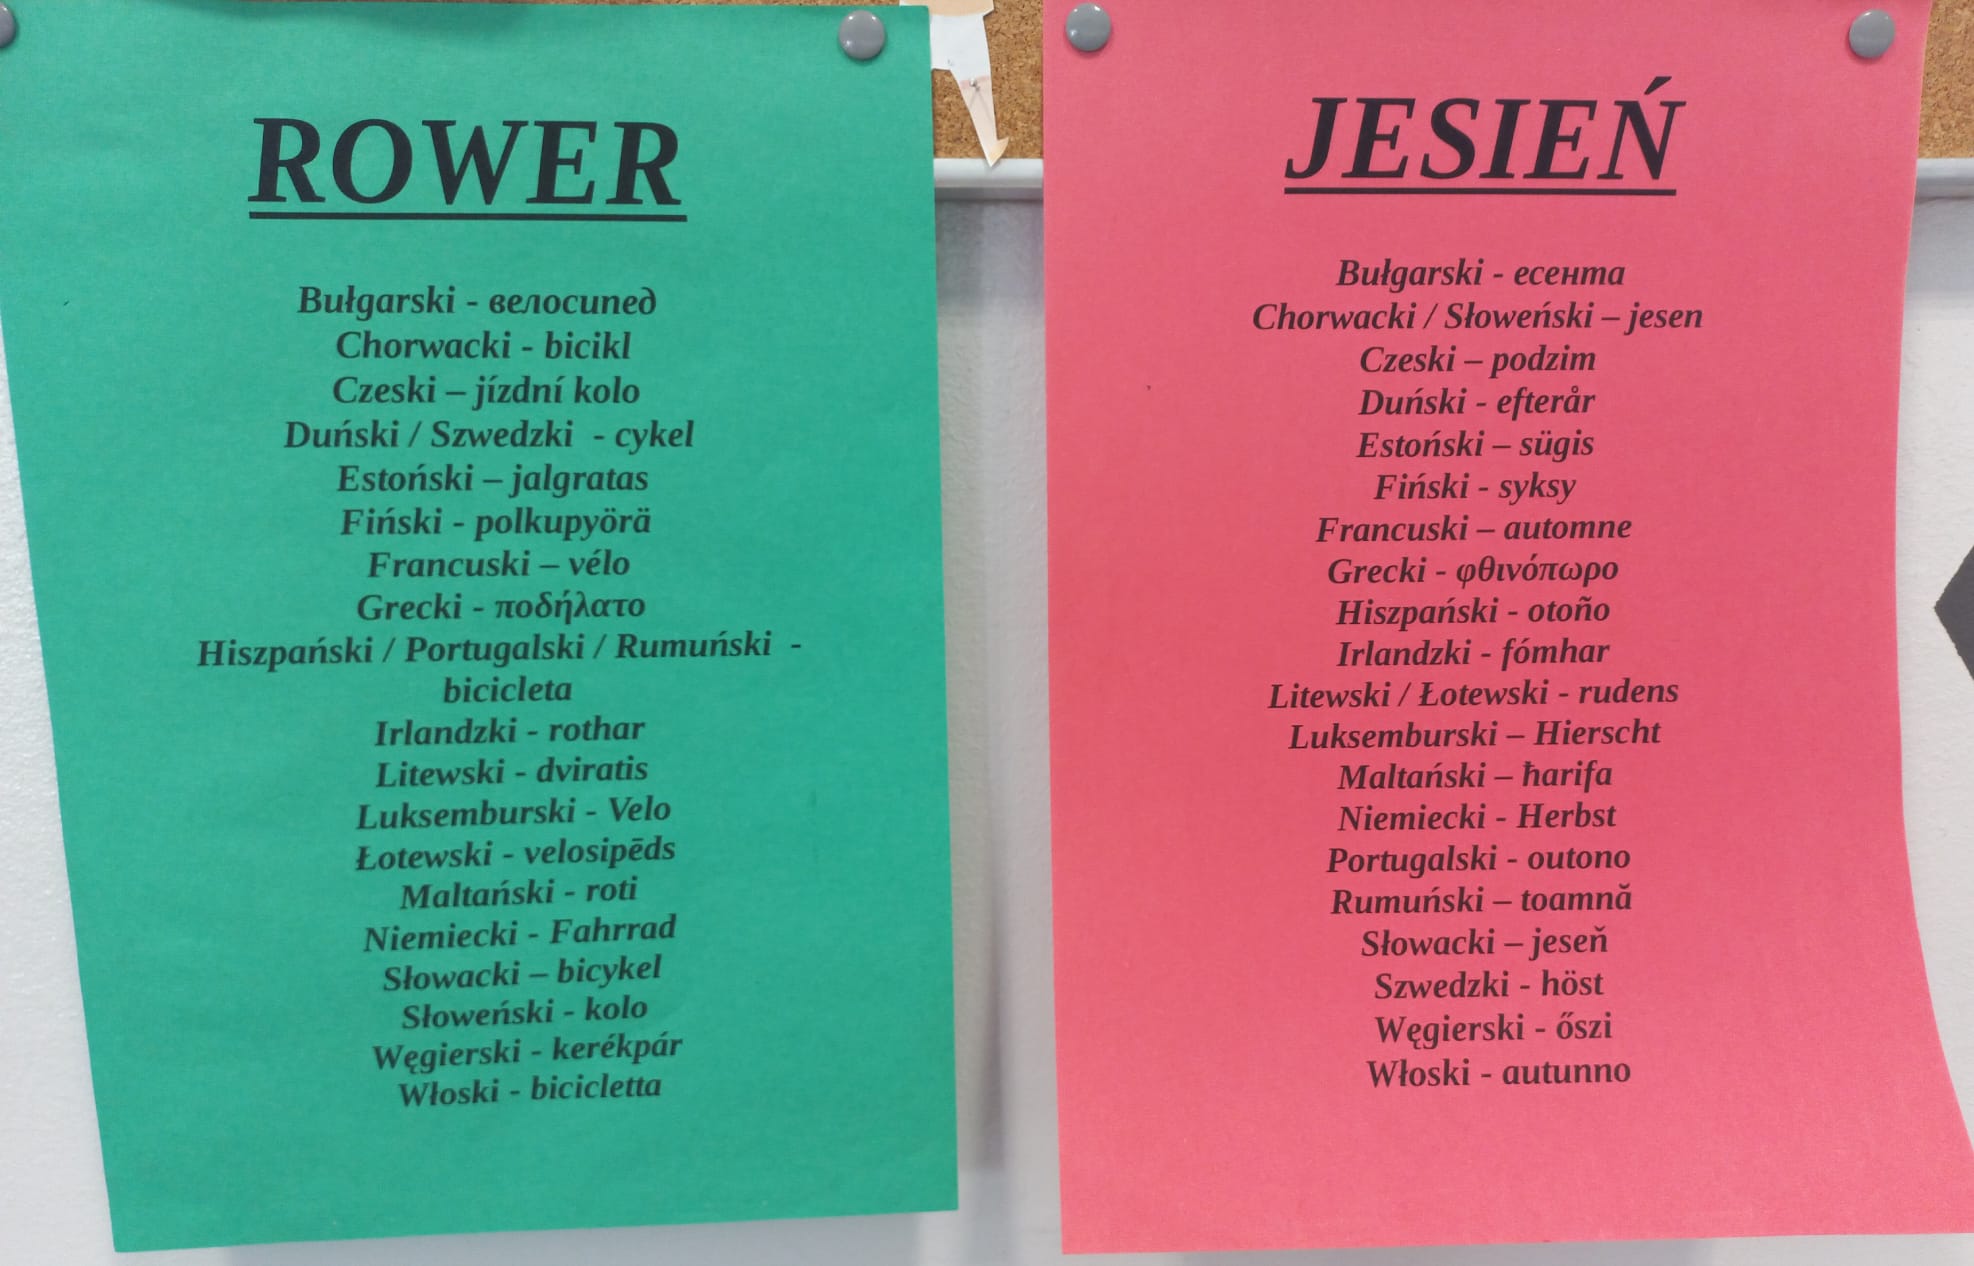 ROWER
Bułgarski - велосипед
Chorwacki - bicikl
Czeski – jízdní kolo
Duński / Szwedzki - cykel
Estoński – jalgratas
Fiński - polkupyörä
Francuski – vélo
Grecki - ποδήλατο
Hiszpański / Portugalski / Rumuński -
bicicleta
Irlandzki - rothar
Litewski - dviratis
Luksemburski - Velo
Łotewski - velosipēds
Maltański - roti
Niemiecki - Fahrrad
Słowacki – bicykel
Słoweński - kolo
Węgierski - kerékpár
Włoski - bicicletta
JESIEŃ
Bułgarski - есента
Chorwacki / Słoweński – jesen
Czeski – podzim
Duński - efterår
Estoński – sügis
Fiński - syksy
Francuski – automne
Grecki - φθινόπωρο
Hiszpański - otoño
Irlandzki - fómhar
Litewski / Łotewski - rudens
Luksemburski – Hierscht
Maltański – ħarifa
Niemiecki - Herbst
Portugalski - outono
Rumuński – toamnă
Słowacki – jeseň
Szwedzki - höst
Węgierski - őszi
Włoski - autunno